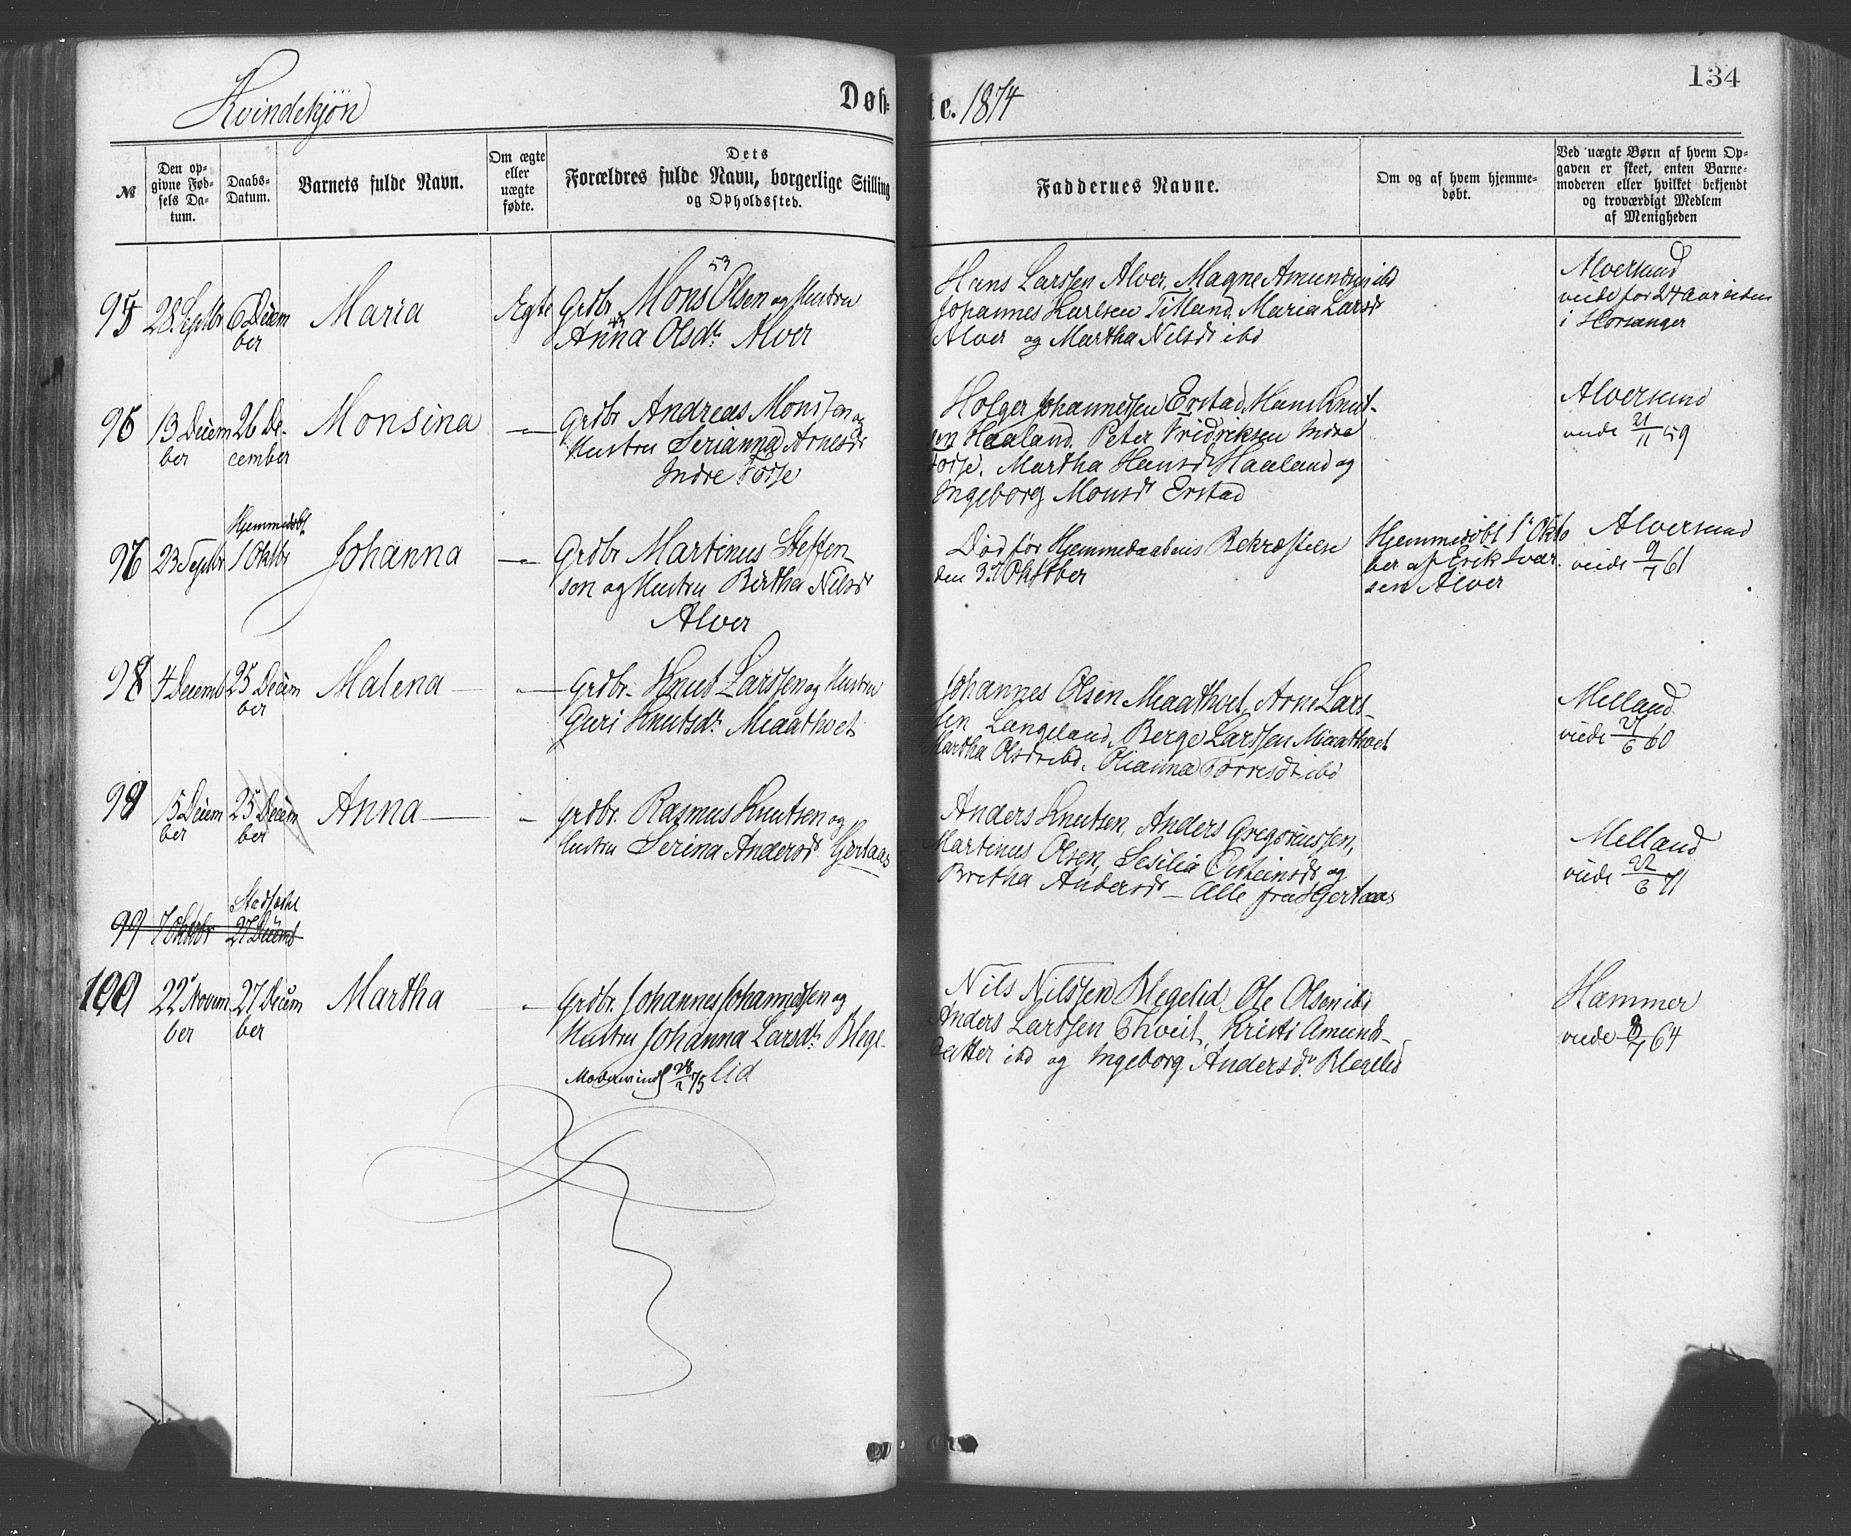 134
Kvindekjøn
Døbte. 1874
№
Den opgivne Fødsels Datum.
Daabs-Datum.
Barnets fulde Navn.
Om ægte eller uægte fødte.
Dets
Forældres fulde Navn, borgerlige Stilling
og Opholdssted.
Faddernes Navne.
Om og af hvem hjemmedøbt.
Ved uægte Børn af hvem Opgaven er skeet, enten Barnemoderen eller hvilket bekjendt og troværdigt Medlem af Menigheden
95 28 Septbr 6 Decem
ber
Maria
Ægte
Grdbr. Mons Olsen og Hustru
53
Anna Olsdt. Alver
Hans Larssen Alver, Magne Amundsen ibd
Johannes Karlsen Titland Maria Larsdt
Alver og Martha Nilsdt ibd
Alversund
viede for 24 Aar siden
i Hosanger
96 13 Decem 26 De-
ber cember
Monsina
Grdbr. Andreas Monssen og
Hustru Serianna Arnesdt
Indre Fosse
Holger Johannessen Erstad, Hans Knut-
sen Haaland. Peter Fridriksen Indre
Fosse. Martha Hansdt Haaland og
Ingeborg Monsdt Erstad
Alversund
viede 21/11 59
Hjemmedøbt
96 23 Septbr 1 Oktbr
Johanna
Grdbr Martinus Steffen
son og Hustru Birtha Nilsdt
Alver
Død før Hjemmedaabens Bekræftelse
den 3. Oktober
Hjemmedøbt 1 Okto
ber af Erik Ivar
sen Alver
Alversund
viede 9/7 61
98 4 Decemb 25 Decem
ber
Malena
Grdbr. Knut Larssen og Hustru
Guri Knutsdt. Miaathvet
Johannes Olsen Miaathvet, Arne Lars-
sen Langeland, Berge Larssen Miaathvet
Martha Olsdt ibd. Olianna Torresdt ibd
Melland
viede 27/6 60
99 15 Decem 25 Decem
ber ber
Anna
Grdbr. Rasmus Knutsen og
Hustru Serina Andersdt Gjertaas
Anders Knutsen, Anders Gregoriussen,
Martinus Olsen, Sesilia Oisteinsdt og
Bretha Andersdt – Alle fra Gjertaas
Melland
viede 22/6 71
99 7 Oktbr 27 Decemb
100 22 Novem 27 Decem
ber ber
Martha
Grdbr. Johannes Johannessen og
Hustru Johanna Larsdt. Blege-
lid
28/2 75
Nils Nilssen Blegelid Ole Olsen ibd
Anders Larssen Thveit, Kristi Amunds-
datter ibd og Ingeborg Andersdt. Blegelid
Hammer
viede 8/7 64